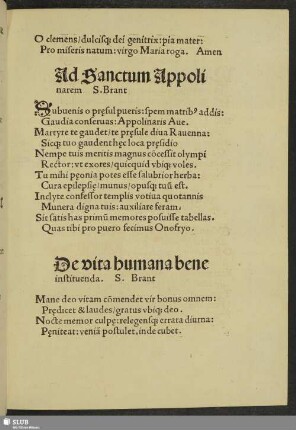 O clemens/dulcisqꝫ dei genitrix:pia mater:
Pro miseris natum:virgo Maria roga. Amen
Ad Sanctum Appoli
narem S.Brant
Subuenis o pręsul pueris:spem matribꝰ addis:
Gaudia conseruas:Appolinaris Aue.
Martyre te gaudet/te pręsule diua Rauenna:
Sicqꝫ tuo gaudent hęc loca pręsidio
Nempe tuis meritis magnus cõcessit olympi
Rector:vt exores/quicquid vbiqꝫ voles.
Tu mihi pęonia potes esse salubrior herba:
Cura epilepsię/munus/opusqꝫ tuũ est.
Inclyte confessor templis votiua quotannis
Munera digna tuis:auxiliare feram.
Sit satis has primũ memores posuisse tabellas.
Quas tibi pro puero fecimus Onofryo.
De vita humana bene
instituenda. S. Brant
Mane deo vitam cõmendet vir bonus omnem:
Prędicet &laudes/gratus vbiqꝫ deo.
Nocte memor culpę:relegensqꝫ errata diurna:
Pęniteat:veniã postulet,inde cubet.
SLUB